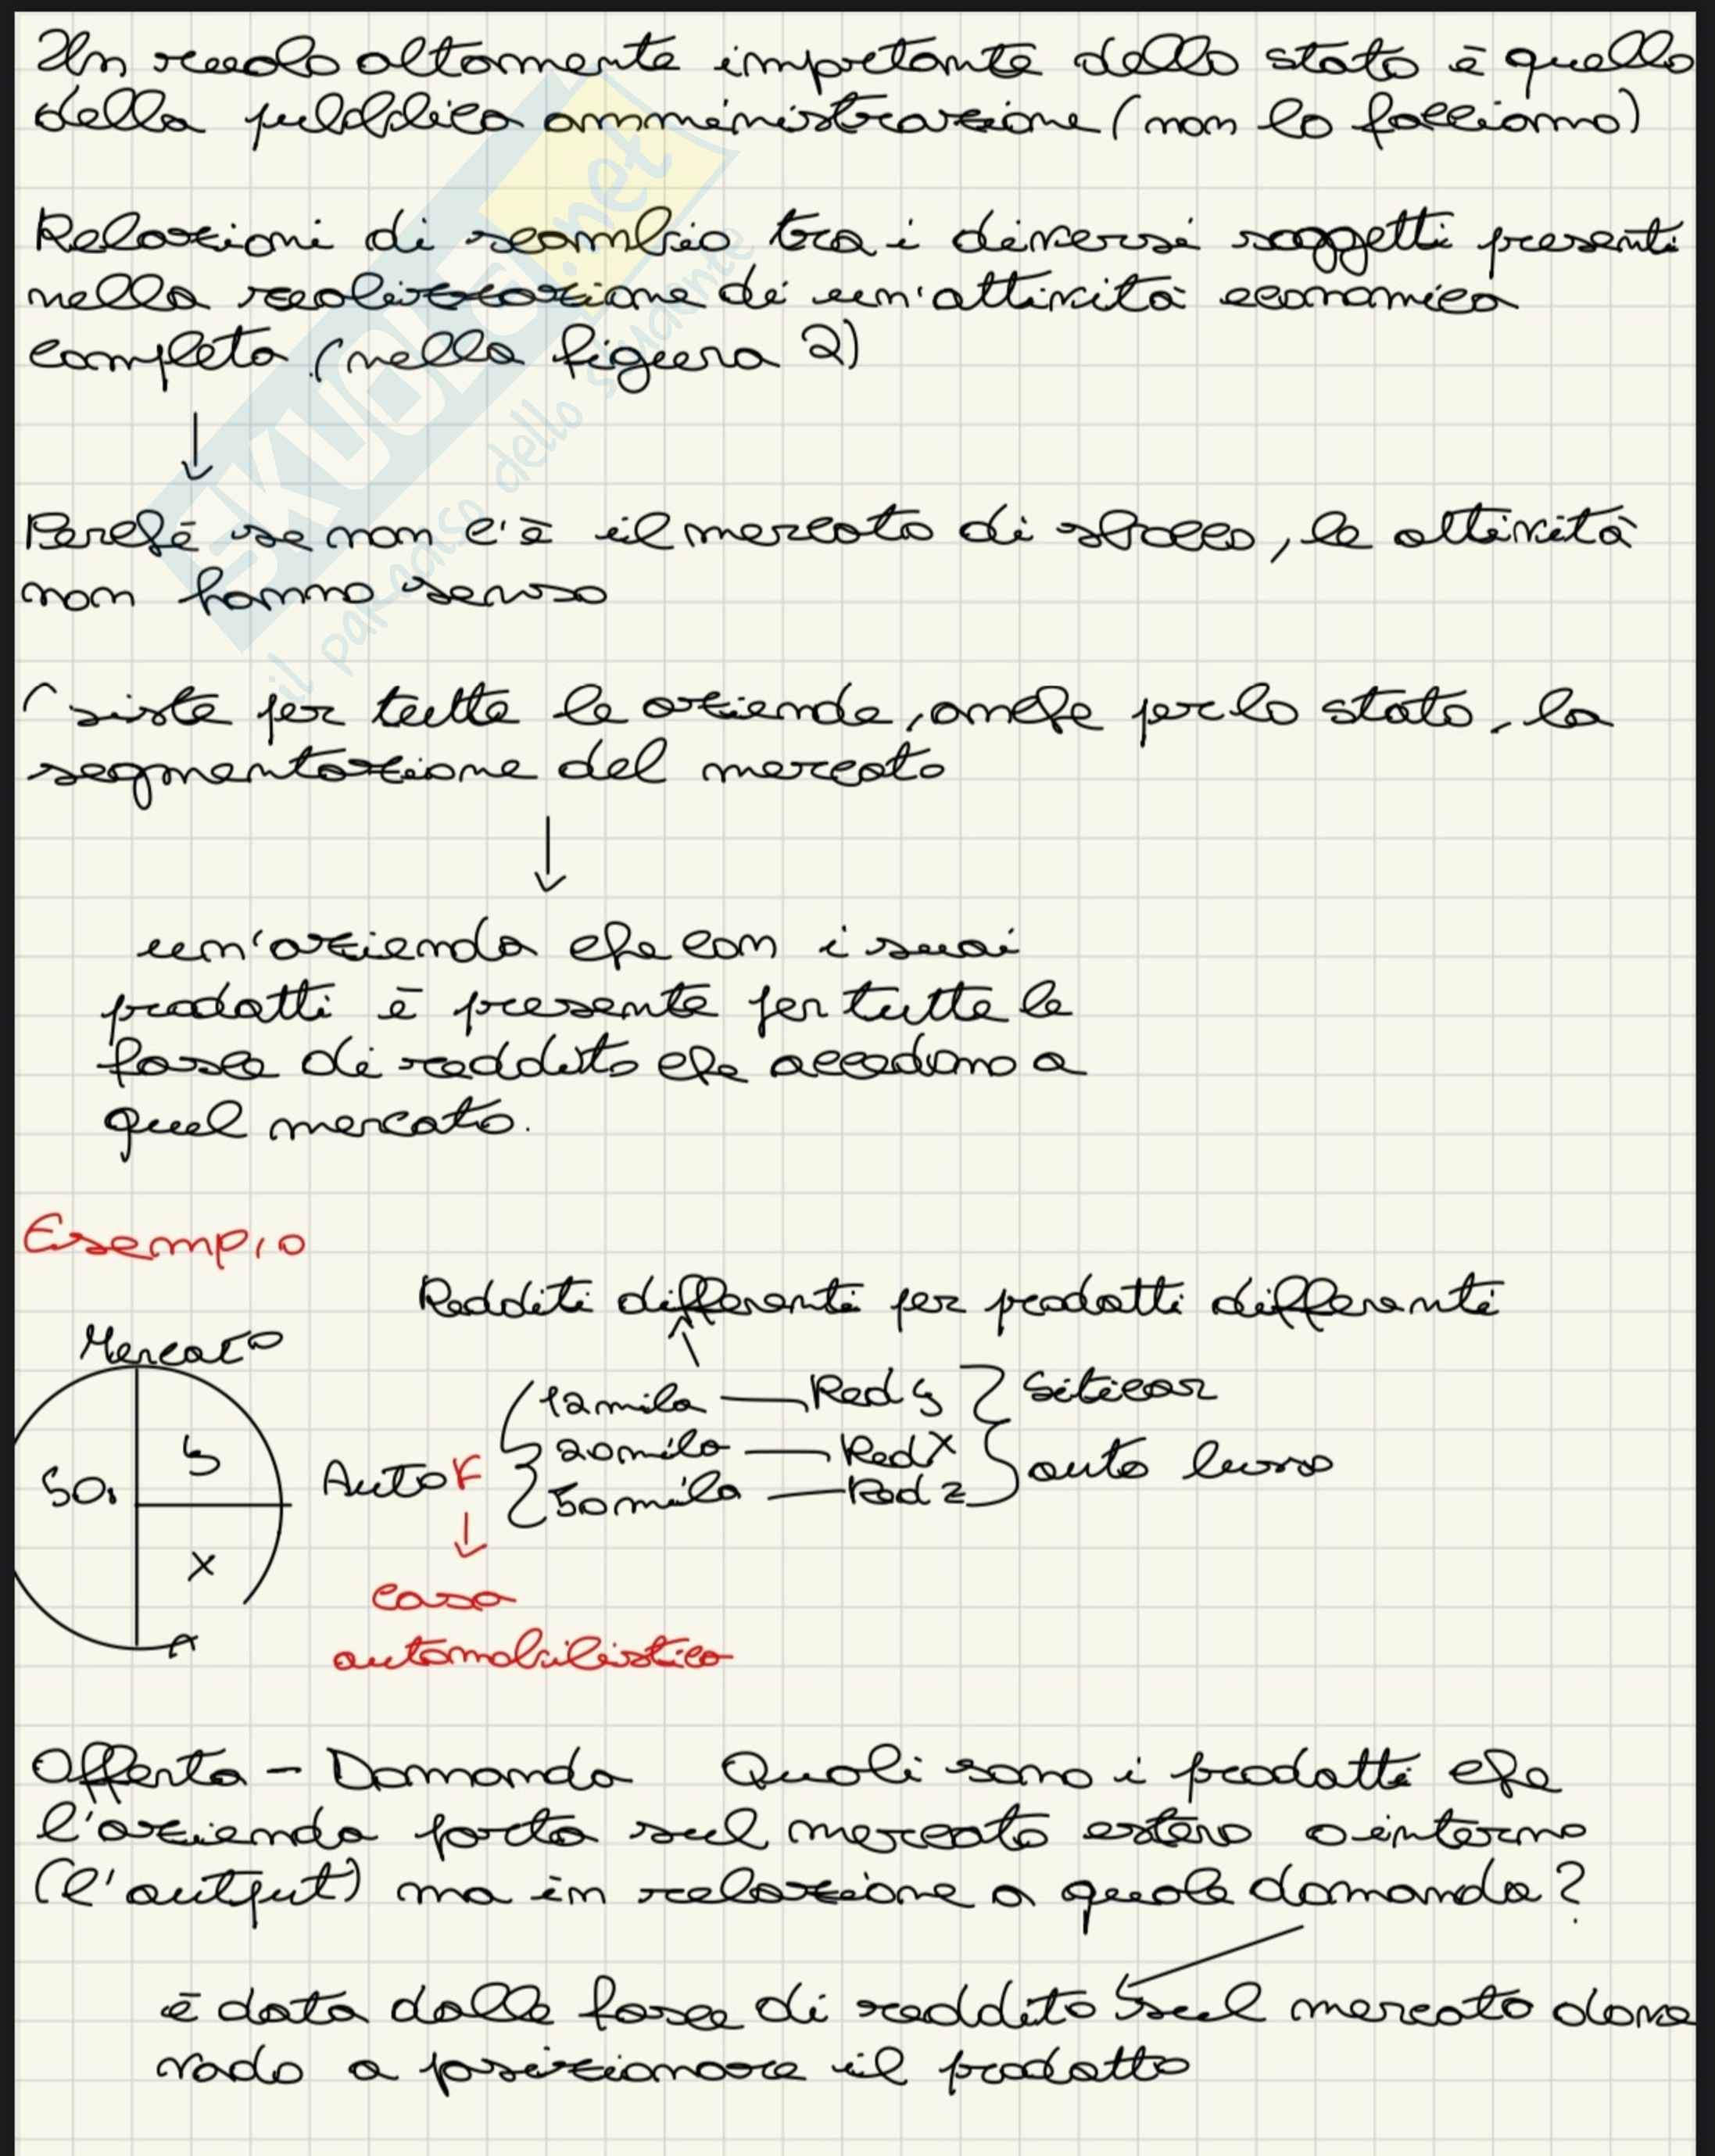 Un ruolo altamente importante dello stato è quello
della pubblica amministrazione (non lo facciamo)
Relazioni di scambio tra i diversi soggetti presenti
nella realizzazione di un'attività economica
completa (nella figura 2)
Perché se non c'è il mercato di sbocco, le attività
non hanno senso
siste per tutte le aziende, anche per lo stato, la
segmentazione del mercato
un'azienda che con i suoi
prodotti è presente per tutte le
fasce di reddito che accedono a
quel mercato.
Esempio
Redditi differenti per prodotti differenti
Mercato
12mila — Red y } Citicar
20mila — Red X
50mila — Red z } auto lusso
Auto F
y
X
casa
automobilistica
Offerta - Domanda Quali sono i prodotti che
l'azienda porta sul mercato estero o interno
(l'output) ma in relazione a quale domanda?
è data dalle fasce di reddito sul mercato dove
vado a posizionare il prodotto
SKUOLA.net
il paradiso dello studente